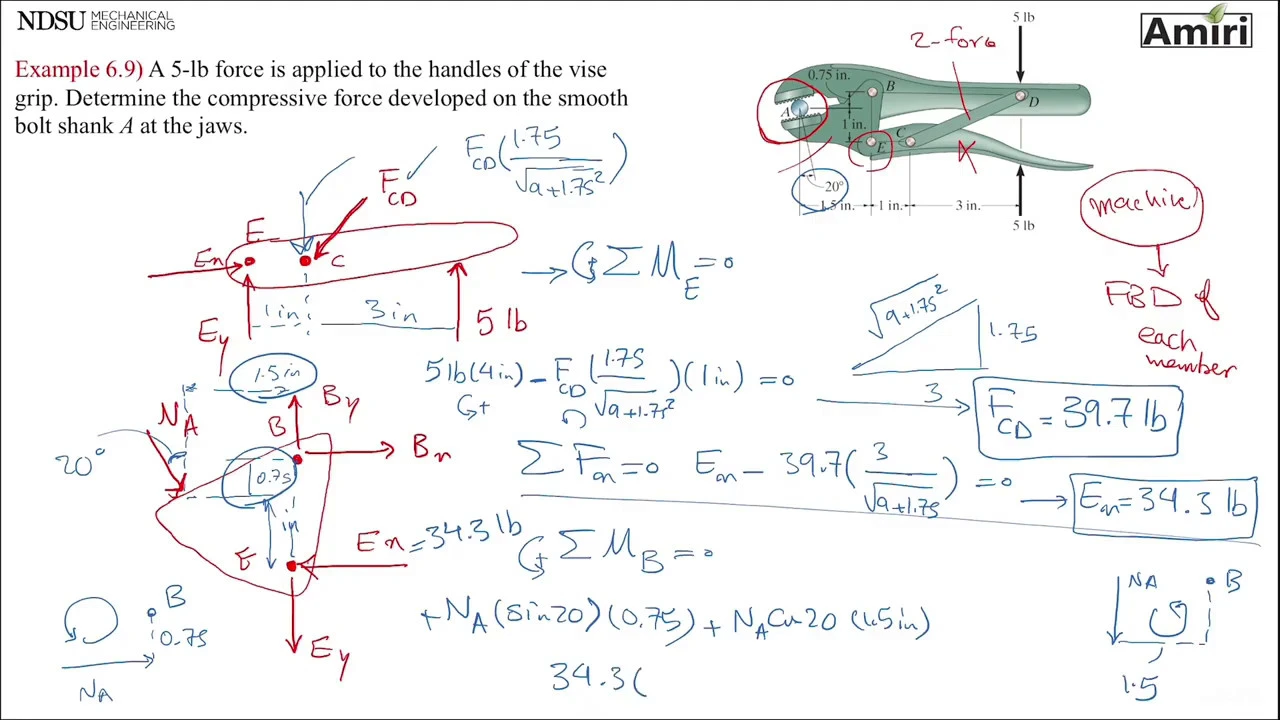 NDSU MECHANICAL ENGINEERING
Amiri
Example 6.9) A 5-lb force is applied to the handles of the vise
grip. Determine the compressive force developed on the smooth
bolt shank A at the jaws.
5 lb
2-force
0.75 in.
B
A
D
1 in.
C
E
20°
1.5 in. 1 in. 3 in.
5 lb
machine
FBD of
each
member
F_CD (1.75 / √9+1.75²)
F_CD
E
Ex
C
1 in 3 in
Ey
5 lb
→ ↺+ Σ M_E = 0
√9+1.75²
1.75
3
5 lb (4 in) - F_CD (1.75 / √9+1.75²) (1 in) = 0
F_CD = 39.7 lb
Σ Fx = 0 Ex - 39.7 (3 / √9+1.75) = 0
→ Ex = 34.3 lb
1.5 in
By
N_A
B
Bx
20°
0.75
1 in
E
Ex = 34.3 lb
Ey
↺+ Σ M_B = 0
+ N_A (sin20) (0.75) + N_A Cos20 (1.5 in)
34.3 (
B
0.75
N_A
N_A
B
1.5